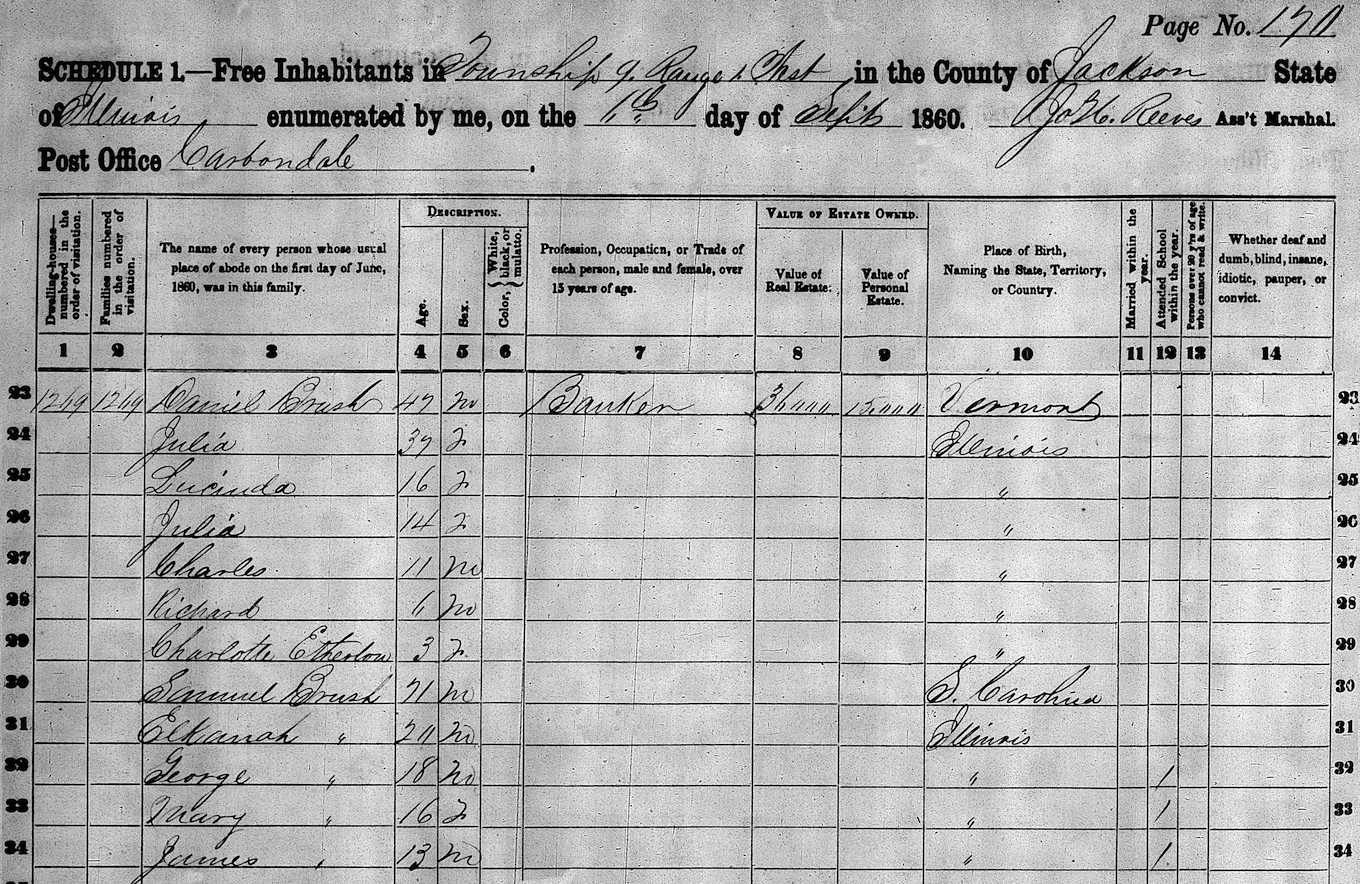 Page No. 170
SCHEDULE 1.—Free Inhabitants in Township 9. Range 1 West in the County of Jackson State
of Illinois enumerated by me, on the day of Sept 1860. Reeves Ass't Marshal.
Post Office Carbondale.
DESCRIPTION. VALUE OF ESTATE OWNED.
Dwelling-houses—numbered in the order of visitation. Families numbered in the order of visitation. The name of every person whose usual place of abode on the first day of June, 1860, was in this family. Age. Sex. Color, { White, black, or mulatto. Profession, Occupation, or Trade of each person, male and female, over 15 years of age. Value of Real Estate. Value of Personal Estate. Place of Birth, Naming the State, Territory, or Country. Married within the year. Attended School within the year. Persons over 20 y'rs of age who cannot read & write. Whether deaf and dumb, blind, insane, idiotic, pauper, or convict.
1 2 3 4 5 6 7 8 9 10 11 12 13 14
23 1269 1269 Daniel Brush 47 m Banker 36,000 15,000 Vermont 23
24 Julia 37 f Illinois 24
25 Lucinda 16 f " 25
26 Julia 14 f " 26
27 Charles 11 m " 27
28 Richard 6 m " 28
29 Charlotte Etherton 3 f " 29
30 Samuel Brush 21 m S. Carolina 30
31 Elkanah " 20 m Illinois 31
32 George " 18 m " 1 32
33 Mary " 16 f " 1 33
34 James " 13 m " 1 34